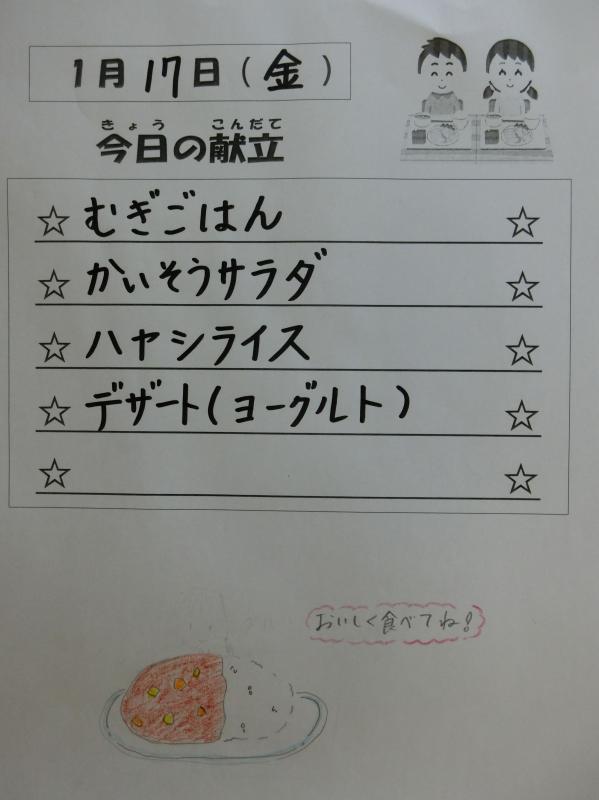 1月17日(金)
きょう こんだて
今日の献立
☆ むぎごはん ☆
☆ かいそうサラダ ☆
☆ ハヤシライス ☆
☆ デザート(ヨーグルト) ☆
☆ ☆
おいしく食べてね!